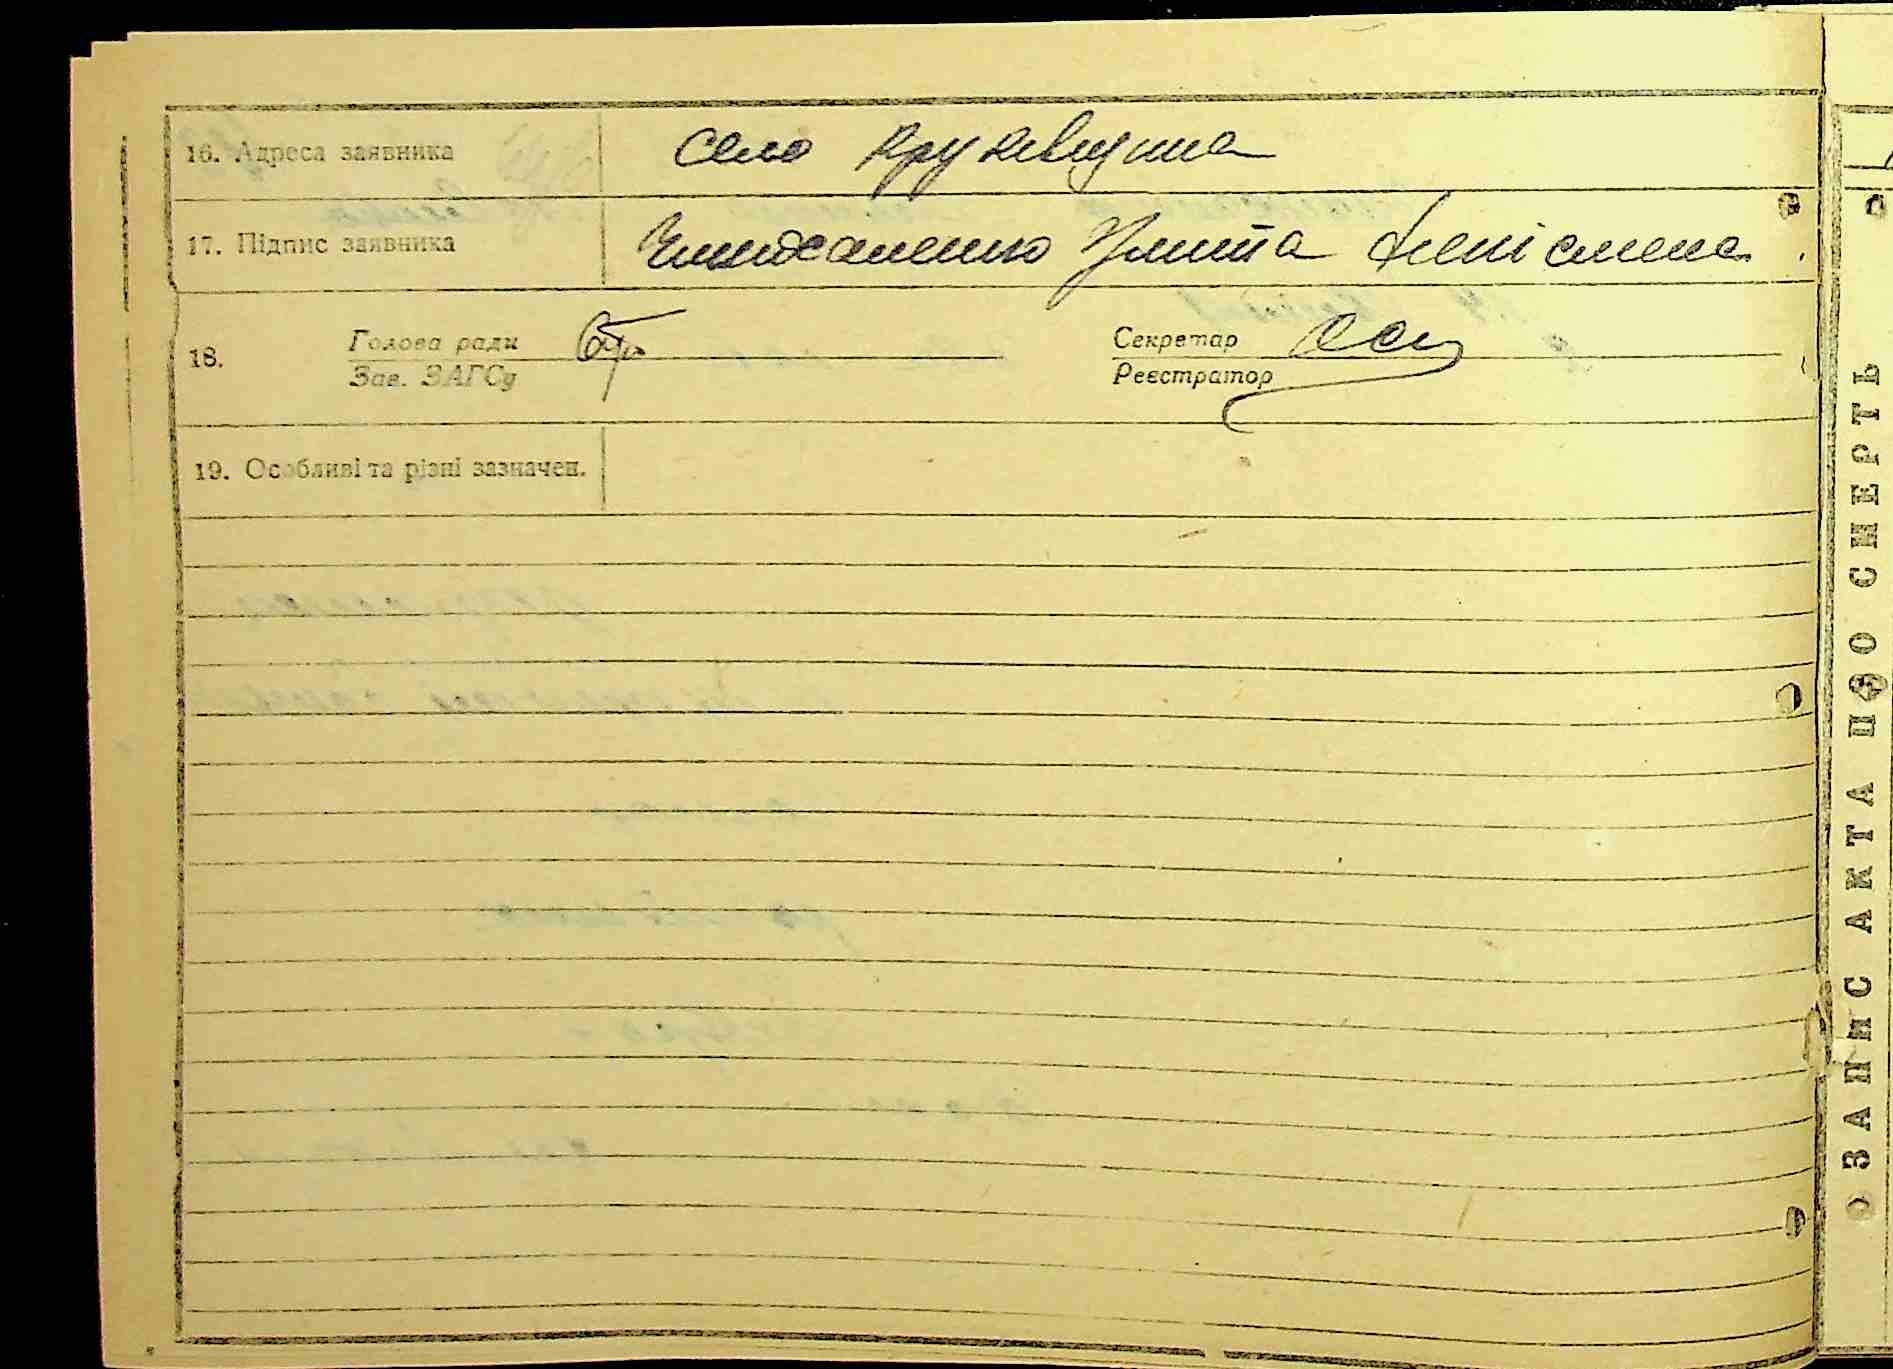 16. Адреса заявника село Крукивщина
17. Підпис заявника Улита неписмена
18. Голова ради Секретар
Зав. ЗАГСу Реєстратор
19. Особливі та різні зазначен.
ЗАПИС АКТА ПРО СМЕРТЬ